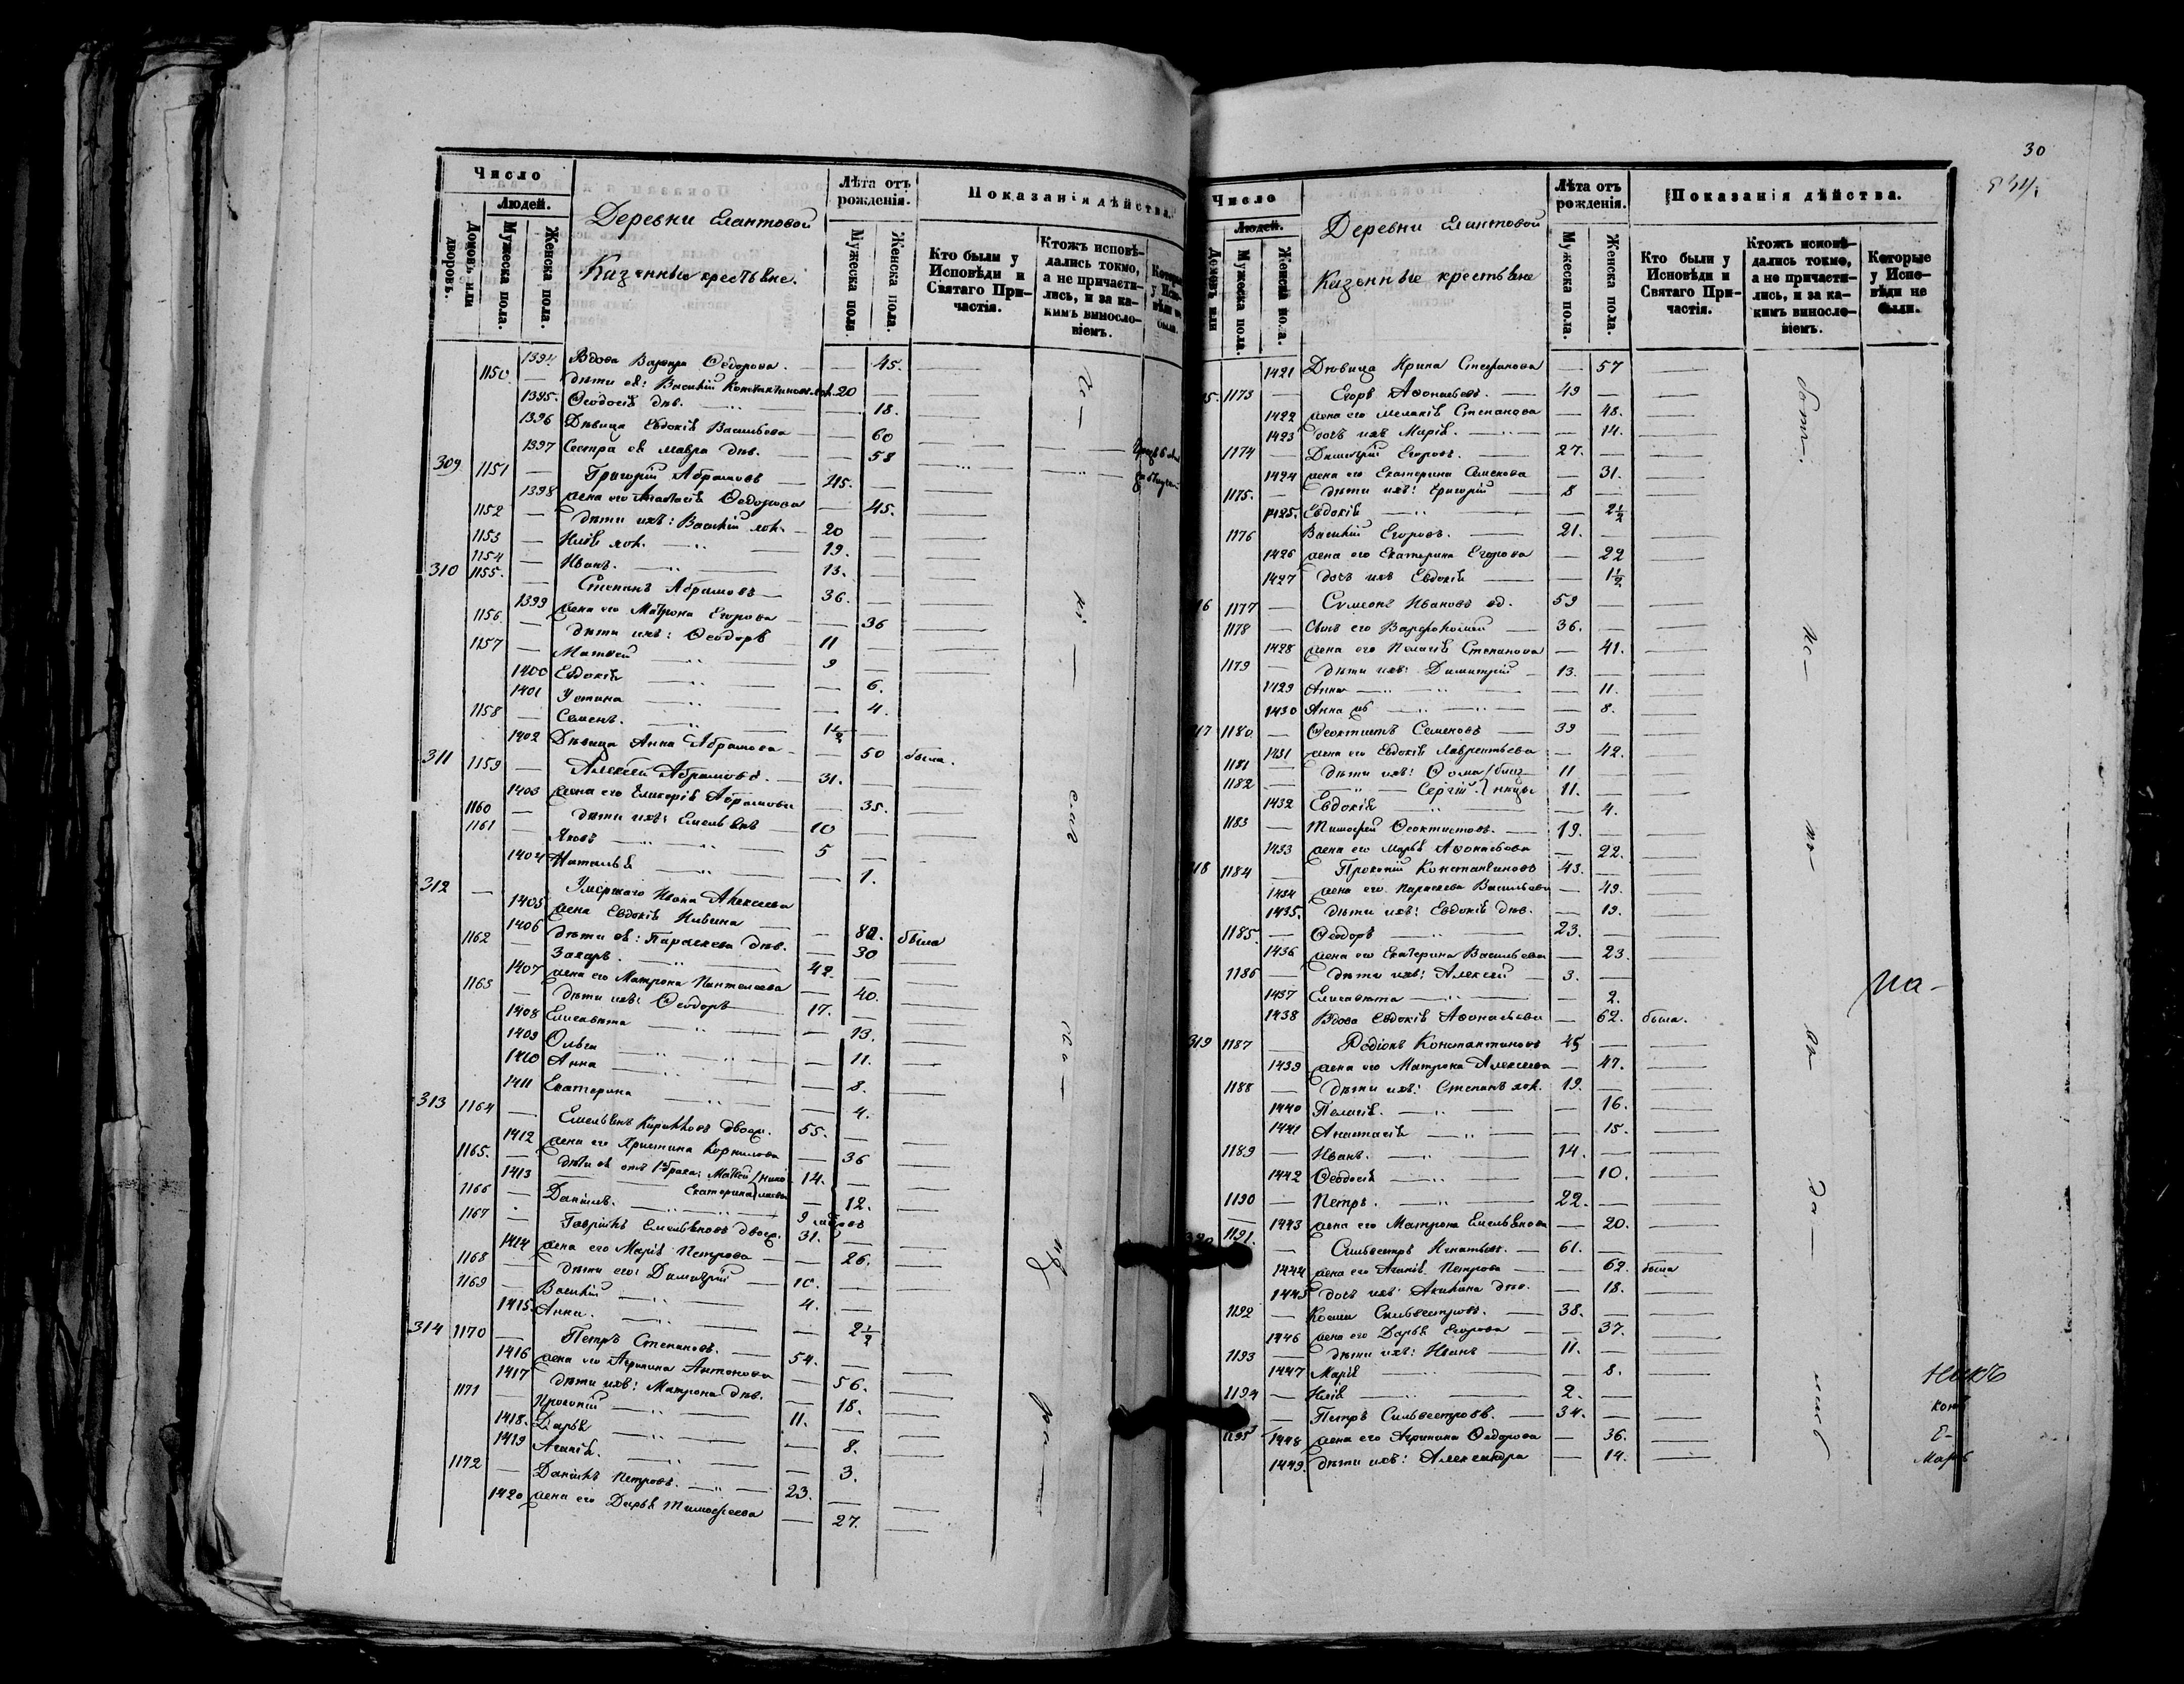 Число
Людей.
Домовъ или дворовъ.
Мужеска пола.
Женска пола.
Деревни Елантовой
Казенные крестьяне.
Лѣта отъ рожденія.
Мужеска пола
Женска пола.
Показанія дѣйства.
Кто были у Исповѣди и Святаго Причастія.
Ктожъ исповѣдались токмо, а не причастились, и за какимъ винословіемъ.
1394 Вдова Варвара Ѳедорова. — 45.
1150. дѣти ея: Василій Константиновъ хол. 20
1395. Ѳеодосія дѣв. — 18.
1396 Дѣвица Евдокія Васильева — 60
1397 Сестра ея Мавра дѣв. — 58
309 1151 Григорій Абрамовъ — 45.
1398 жена его Анастасія Ѳедорова — 45.
1152 дѣти ихъ: Василій хол. — 20
1153 Илія хол. — 19.
1154 Иванъ. — 13.
310 1155. Степанъ Абрамовъ — 36.
1399 жена его Матрона Егорова — 36
1156 дѣти ихъ: Ѳеодоръ 11
1157 Матвей 9
1400 Евдокія — 6.
1401 Устина — 4.
1158 Семенъ. 1½
1402 Дѣвица Анна Абрамова — 50 была.
311 1159 Алексѣй Абрамовъ. — 31.
1403 жена его Гликерія Абрамова — 35.
1160 дѣти ихъ: Емельянъ — 10
1161 Яковъ 5
1404 Наталья — 1.
312 Умершаго Ивана Алексеева
1405 жена Евдокія Ильина — 80. была
1406 дѣти ея: Параскева дѣв. — 30
1162 Захаръ. 42.
1407 жена его Матрона Пантелеева — 40.
1163 дѣти ихъ: Ѳеодоръ 17.
1408 Елисавета — 13.
1409 Ольга — 11.
1410 Анна — 8.
1411 Екатерина — 4.
313 1164 Емельянъ Кириловъ двоеж. 55.
1412 жена его Христина Корнилова — 36
1165. дѣти ея отъ 1го брака: Матвей 14.
1413 Екатерина — 12.
1166 Даніилъ. 9
1167 Гавріилъ Емельяновъ двоеж. 31.
1414 жена его Марія Петрова — 26.
1168 дѣти его: Димитрій — 10.
1169 Василій 4.
1415 Анна. — 2½
314 1170 Петръ Степановъ. — 54.
1416 жена его Агрипина Антонова — 56.
1417 дѣти ихъ: Матрона дѣв. — 18.
1171 Прокопій 11.
1418. Дарья — 8.
1419 Агапія. — 3.
1172 Даніилъ Петровъ. 23.
1420 жена его Дарья Тимофеева — 27.
30
Число
Людей.
Мужеска пола.
Женска пола.
Деревни Елантовой
Казенные крестьяне
Лѣта отъ рожденія.
Мужеска пола.
Женска пола.
Показанія дѣйства.
Кто были у Исповѣди и Святаго Причастія.
Ктожъ исповѣдались токмо, а не причастились, и за какимъ винословіемъ.
Которые у Исповѣди не были.
1421 Дѣвица Ирина Степанова — 57
1173 Егоръ Аѳонасьевъ. — 49
1422 жена его Меланія Степанова — 48.
1423 дочь ихъ Марія. — 14.
1174 Димитрій Егоровъ. — 27.
1424 жена его Екатерина Семенова — 31.
1175. дѣти ихъ: Григорій 8
1425. Евдокія — 2½
1176 Василій Егоровъ. 21.
1426 жена его Екатерина Егорова — 22
1427 дочь ихъ Евдокія — 1½
1177 Симеонъ Ивановъ вд. 59
1178 Сынъ его Варфоломей 36.
1428 жена его Пелагія Степанова — 41.
1179 дѣти ихъ: Димитрій 13.
1429 Анна — 11.
1430 Анна — 8.
1180 Ѳеоктистъ Семеновъ 39
1431 жена его Евдокія Лаврентьева — 42.
1181 дѣти ихъ: Ѳома 11
1182 Сергій близнецы 11.
1432 Евдокія — 4.
1183 Тимофей Ѳеоктистовъ. 19.
1433 жена его Марья Аѳонасьева — 22.
1184 Прокопій Константиновъ 43.
1434 жена его Параскева Васильева — 49.
1435. дѣти ихъ: Евдокія дѣв. — 19.
1185. Ѳеодоръ 23.
1436 жена его Екатерина Васильева — 23.
1186 дѣти ихъ: Алексѣй 3.
1437 Елисавета — 2.
1438 Вдова Евдокія Аѳонасьева — 62. была.
319 1187 Родіонъ Константиновъ 45
1439 жена его Матрона Алексеева — 47.
1188 дѣти ихъ: Степанъ хол. 19.
1440 Пелагія. — 16.
1441 Анастасія — 15.
1189 Иванъ. 14.
1442 Ѳеодосія — 10.
1190 Петръ. 22.
1443 жена его Матрона Емельянова — 20.
1191. Сильвестръ Игнатьевъ. — 61.
1444 жена его Агапія Петрова — 62. была
1445 дочь ихъ Акилина дѣв. — 18.
1192 Косма Сильвестровъ. 38.
1446 жена его Дарья Егорова — 37.
1193 дѣти ихъ: Иванъ 11.
1447 Марія — 8.
1194 Илія 2.
1195 Петръ Сильвестровъ. 34.
1448 жена его Агрипина Ѳедорова — 36.
1449. дѣти ихъ: Александра — 14.